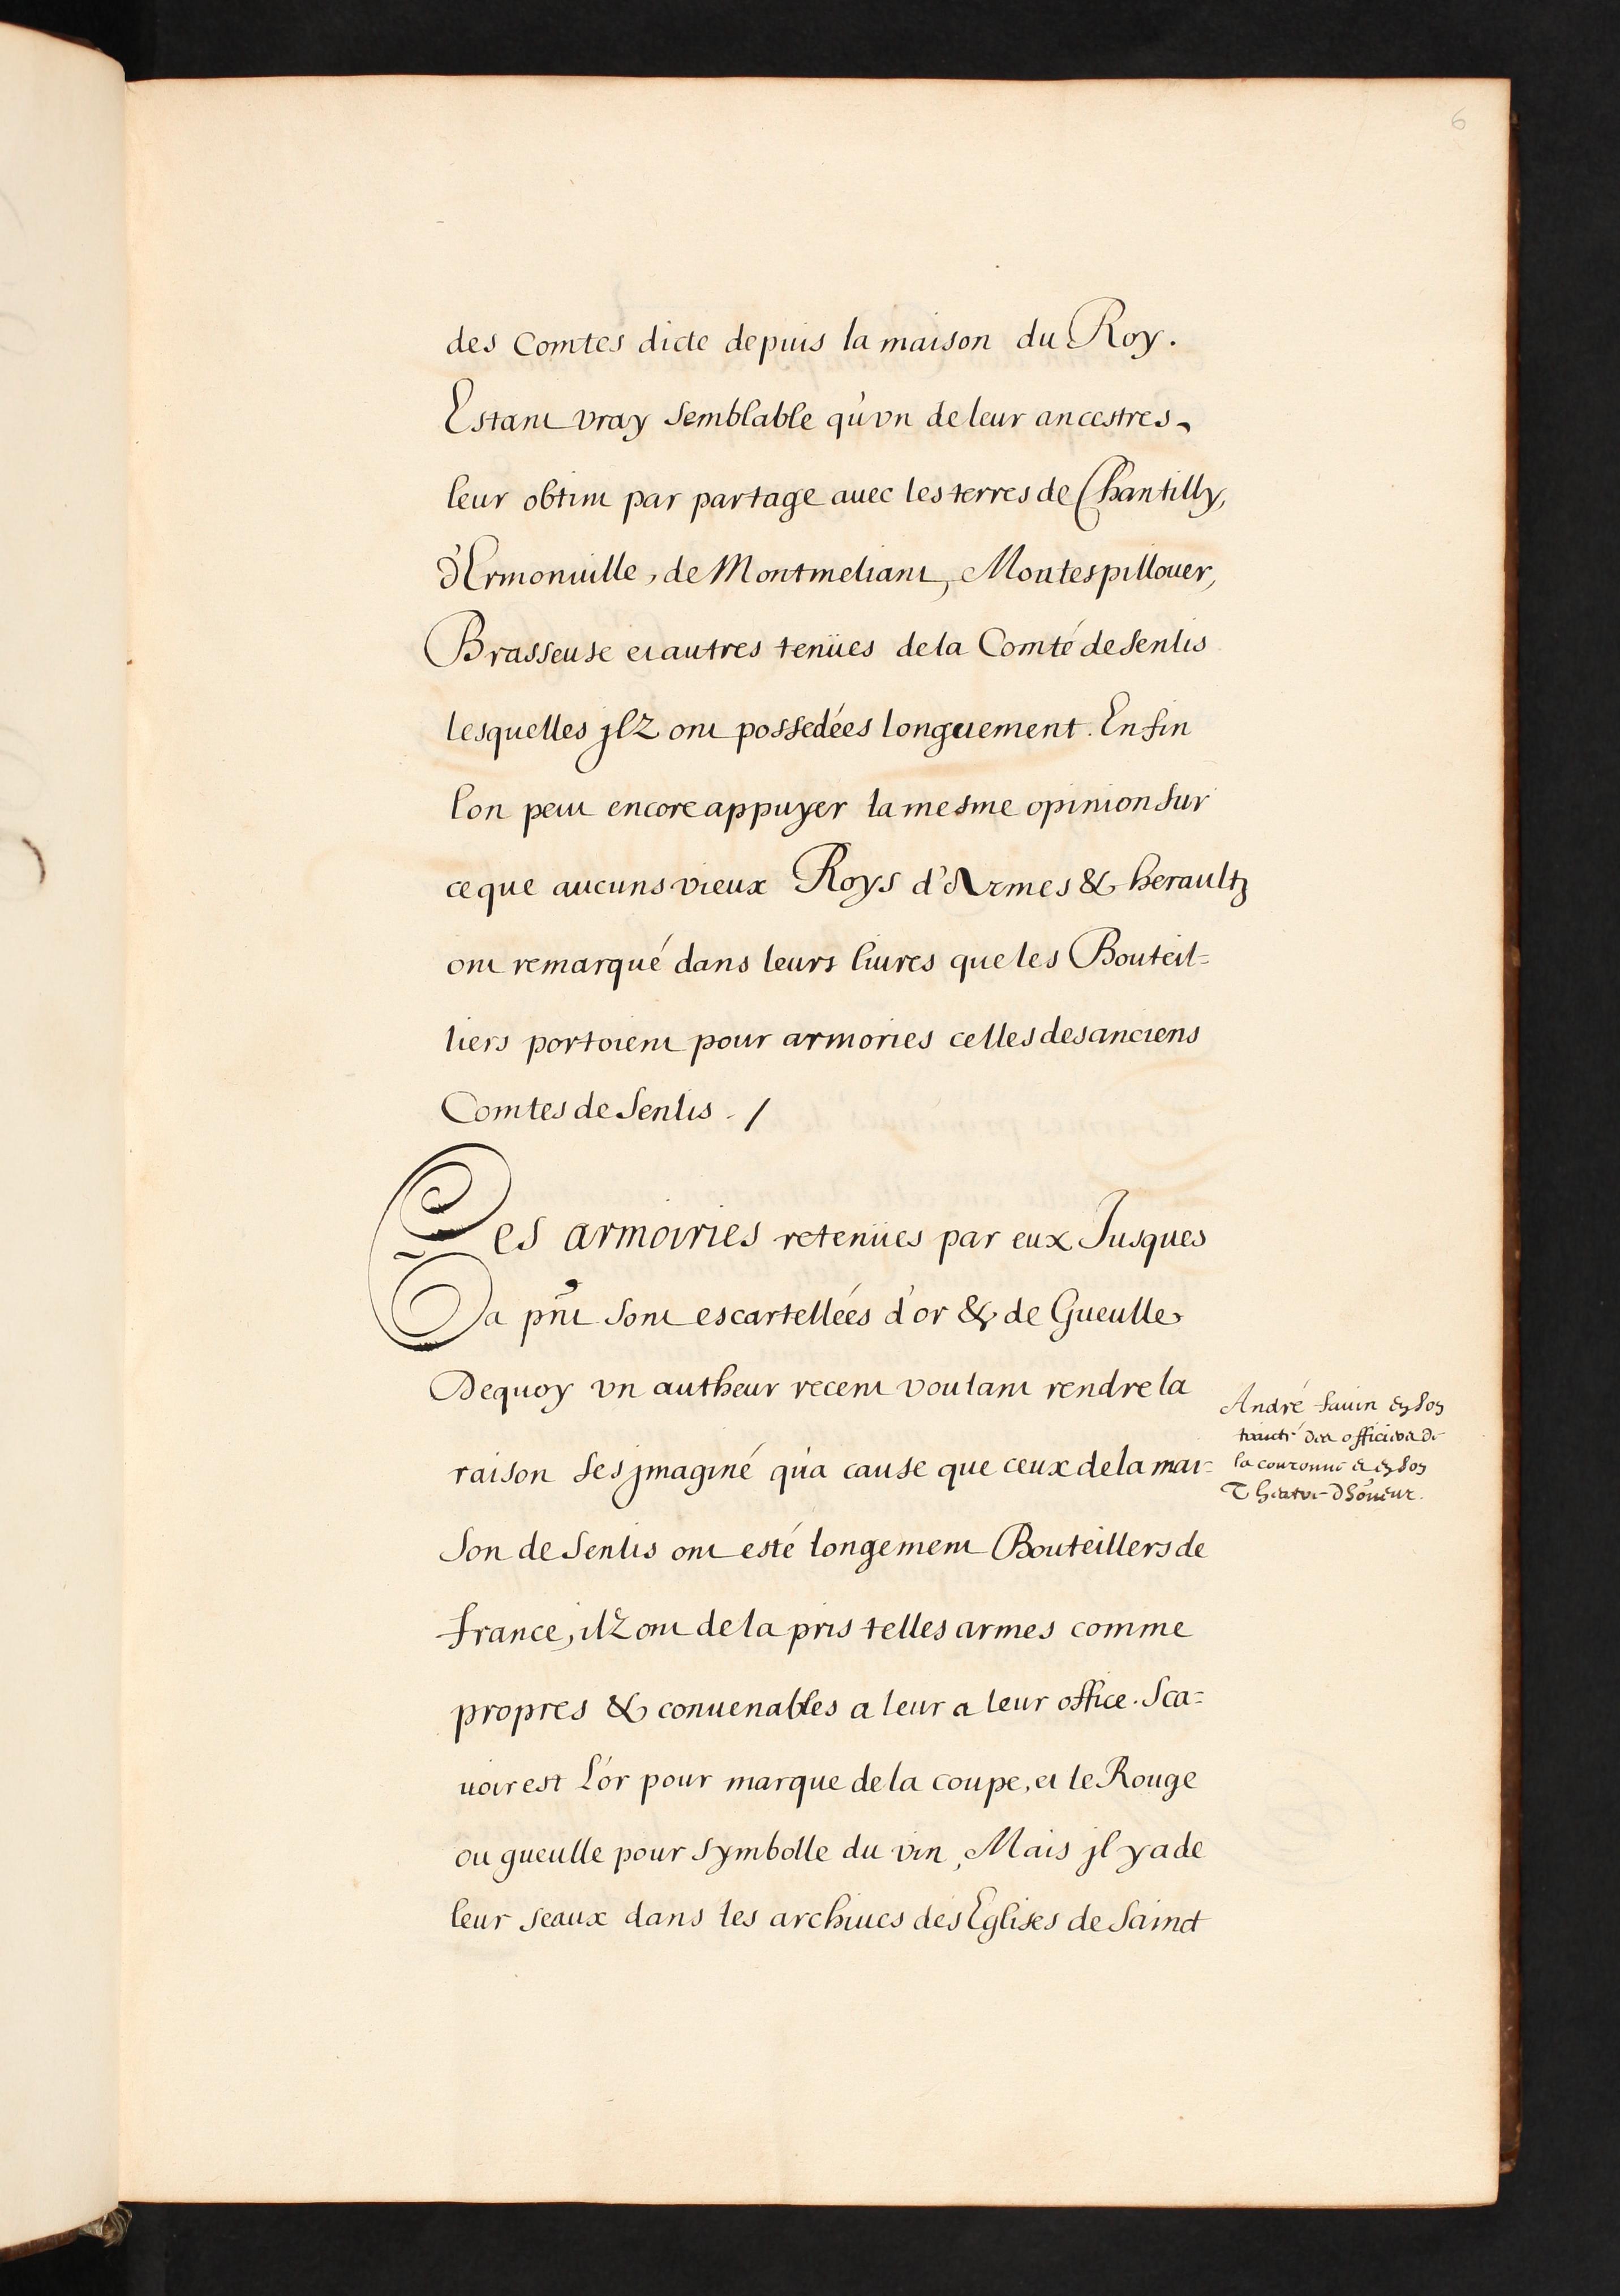 6
des Comtes dicte depuis la maison du Roy.
Estant vray semblable qu'vn de leur ancestres
leur obtint par partage auec les terres de Chantilly,
d'Ermonuille, de Montmeliant, Montespillouer,
Brasseuse et autres tenües de la Comté de Senlis
lesquelles jlz ont possedées longuement. Enfin
l'on peut encore appuyer la mesme opinion sur
ce que aucuns vieux Roys d'Armes & heraultz
ont remarqué dans leurs liures que les Bouteil=
liers portoient pour armories celles des anciens
Comtes de Senlis. /
Ces armoiries retenües par eux Jusques
a pñt sont escartellées d'or & de Gueulle
Dequoy vn autheur recent voulant rendre la
raison ses jmaginé qu'a cause que ceux de la mai=
son de Senlis ont esté longement Bouteillers de
france, ilz ont de la pris telles armes comme
propres & conuenables a leur a leur office. Sca=
uoir est L'or pour marque de la coupe, et le Rouge
ou gueulle pour symbolle du vin, Mais jl y a de
leur seaux dans les archiues des Eglises de Sainct
André fauin en son
traicté des officiers de
la couronne et en son
Theatre d'honeur.